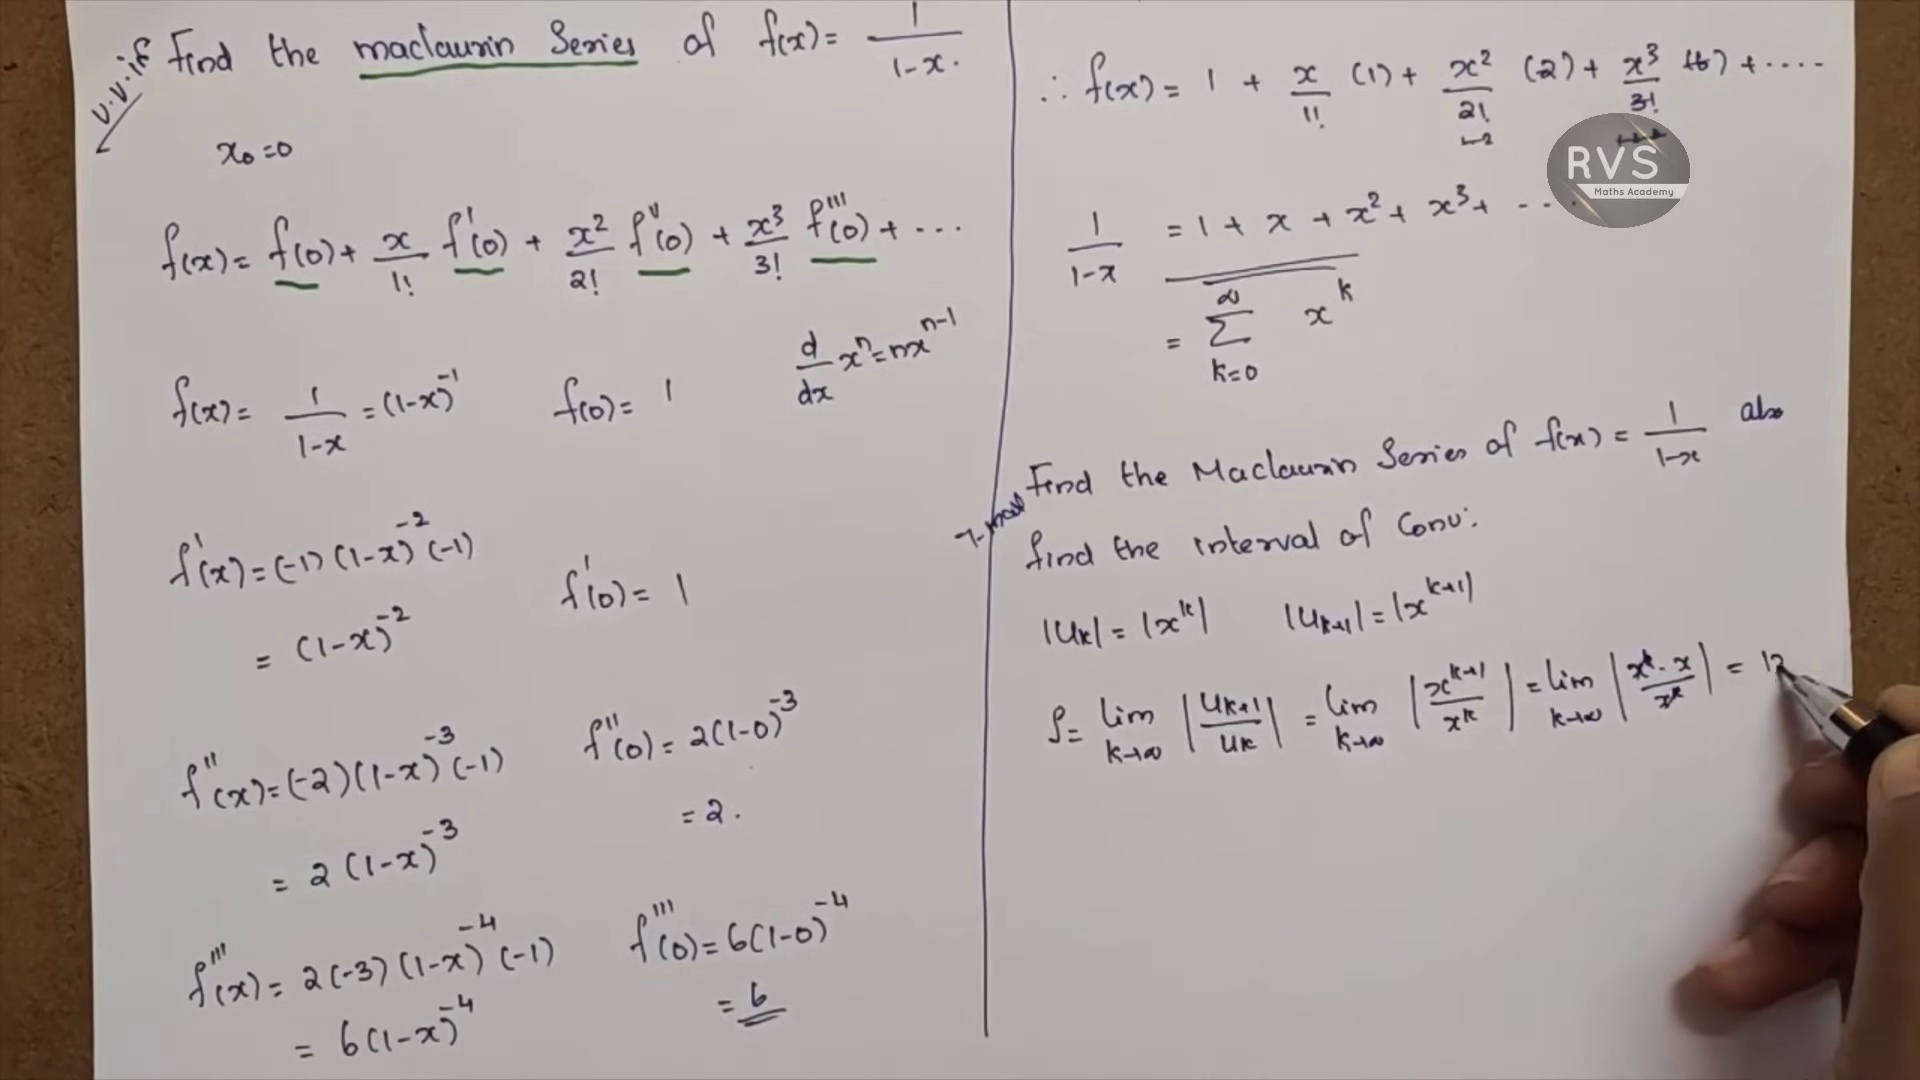 V.V.if
Find the maclaurin Series of f(x) = 1/(1-x).
x₀ = 0
f(x) = f(0) + x/1! f'(0) + x²/2! f''(0) + x³/3! f'''(0) + ...
d/dx xⁿ = nxⁿ⁻¹
f(x) = 1/(1-x) = (1-x)⁻¹   f(0) = 1
f'(x) = (-1)(1-x)⁻²(-1)
= (1-x)⁻²   f'(0) = 1
f''(x) = (-2)(1-x)⁻³(-1)   f''(0) = 2(1-0)⁻³
= 2(1-x)⁻³   = 2.
f'''(x) = 2(-3)(1-x)⁻⁴(-1)   f'''(0) = 6(1-0)⁻⁴
= 6(1-x)⁻⁴   = 6
∴ f(x) = 1 + x/1! (1) + x²/2! (2) + x³/3! (6) + ....
1·2
RVS
Maths Academy
1/(1-x) = 1 + x + x² + x³ + ...
= ∑ₖ₌₀^∞ xᵏ
Find the Maclaurin Series of f(x) = 1/(1-x) also
find the interval of Conv:
|Uₖ| = |xᵏ|   |Uₖ₊₁| = |xᵏ⁺¹|
ρ = lim k→∞ |Uₖ₊₁/Uₖ| = lim k→∞ |xᵏ⁺¹/xᵏ| = lim k→∞ |xᵏ·x/xᵏ| =